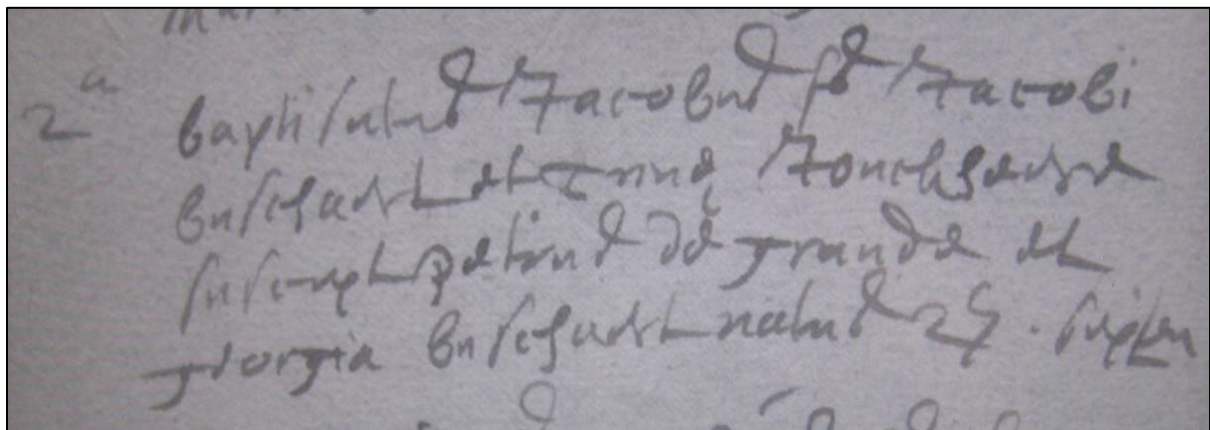 2a baptisatus Jacobus fs Jacobi
buschaert et Annę Jonckheere
suscept petrus de grande et
georgia buschaert natus 27. septem